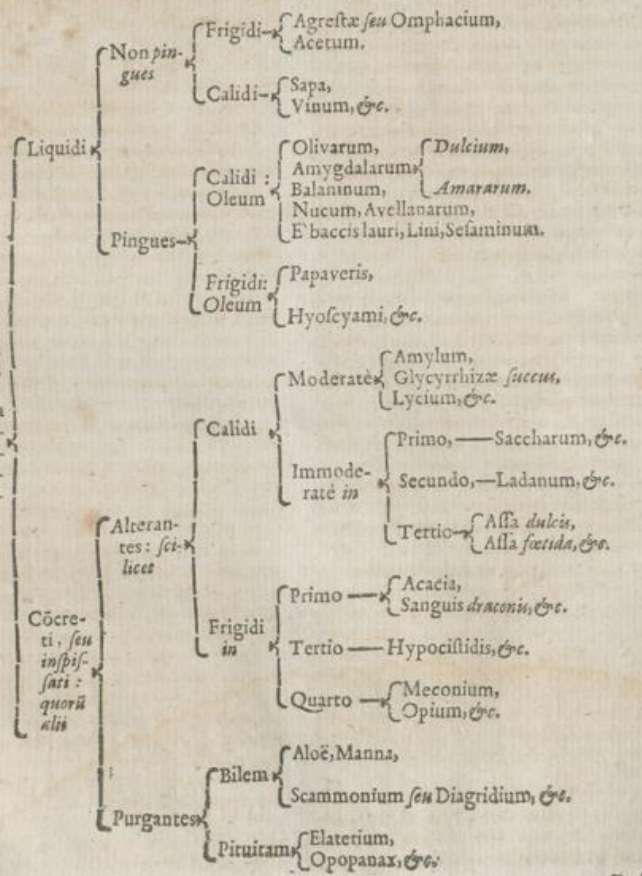 Liquidi
Non pin-
gues
Frigidi
Agrestæ seu Omphacium,
Acetum.
Calidi
Sapa,
Vinum, &c.
Pingues
Calidi :
Oleum
Olivarum,
Amygdalarum
Dulcium,
Amararum.
Balaninum,
Nucum, Avellanarum,
E' baccis lauri, Lini, Sesaminum.
Frigidi:
Oleum
Papaveris,
Hyoscyami, &c.
Cōcre-
ti, seu
inspis-
sati :
quorū
alii
Alteran-
tes : sci-
licet
Calidi
Moderatè
Amylum,
Glycyrrhizæ succus,
Lycium, &c.
Immode-
raté in
Primo, — Saccharum, &c.
Secundo, — Ladanum, &c.
Tertio
Assa dulcis,
Assa fœtida, &c.
Frigidi
in
Primo
Acacia,
Sanguis draconis, &c.
Tertio — Hypocistidis, &c.
Quarto
Meconium,
Opium, &c.
Purgantes
Bilem
Aloë, Manna,
Scammonium seu Diagridium, &c.
Pituitam
Elaterium,
Opopanax, &c.